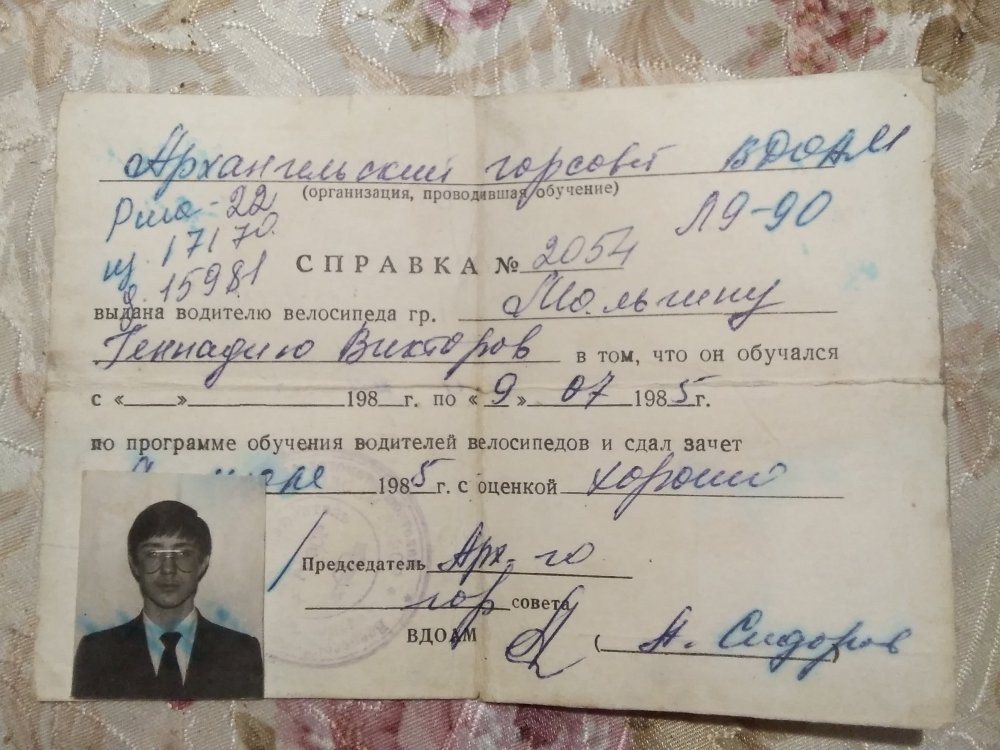 Архангельский горсовет ВДОАМ
(организация, проводившая обучение)
Рша-22 Л9-90
17170
СПРАВКА № 2054
15981
выдана водителю велосипеда гр. Мальгину
Геннадию Викторов в том, что он обучался
с «___» ___ 198__г. по « 9 » 07 1985г.
по программе обучения водителей велосипедов и сдал зачет
1985 г. с оценкой хорошо
Председатель Арх-го
гор совета
ВДОАМ (А. Сидоров)